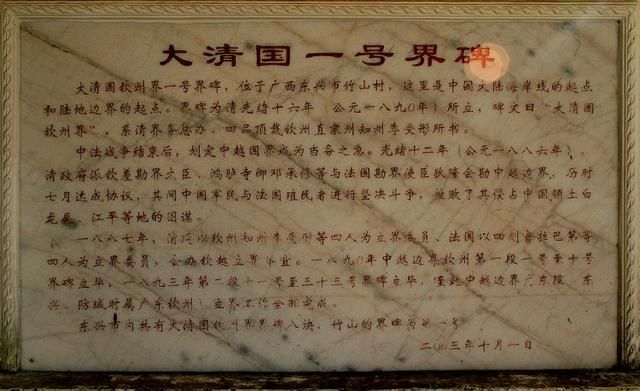 大清国一号界碑
大清国钦州界一号界碑，位于广西东兴市竹山村，这里是中国大陆海岸线的起点
和陆地边界的起点。界碑为清光绪十六年（公元一八九0年）所立，碑文曰“大清国
钦州界”，系清界务总办、四品顶戴钦州直隶州知州李受彤所书。
中法战争结束后，划定中越国界成为当务之急。光绪十二年（公元一八八六年），
清政府派钦差勘界大臣、鸿胪寺卿邓承修等与法国勘界使臣狄隆会勘中越边界，历时
七月达成协议，其间中国军民与法国殖民者进行坚决斗争，挫败了其侵占中国领土白
龙尾、江平等地的图谋。
一八八七年，清廷以钦州知州李受彤等四人为立界委员、法国以四划音拉巴第等
四人为立界委员，会办钦越立界事宜。一八九0年中越边界钦州第一段一号至十号
界碑立毕，一八九三年第二段十一号至三十三号界碑立毕，至此中越边界广东段（东
兴、防城时属广东钦州）立界工作全部完成。
东兴市内共有大清国钦州界界碑八块，竹山的界碑为第一号
二00三年十月一日